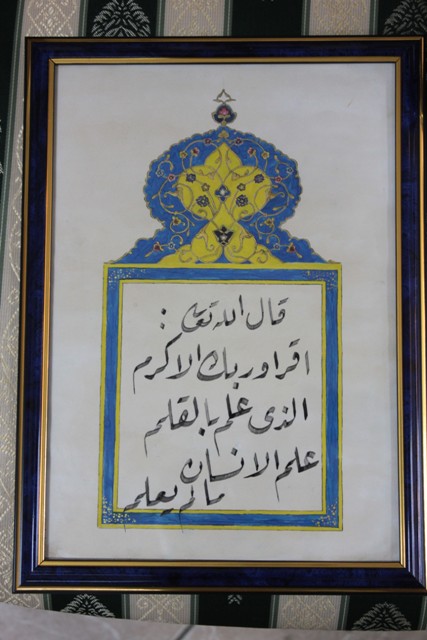 قال الله تعالی :
اقرا وربك الاكرم
الذی علم بالقلم
علم الانسان
مالم يعلم